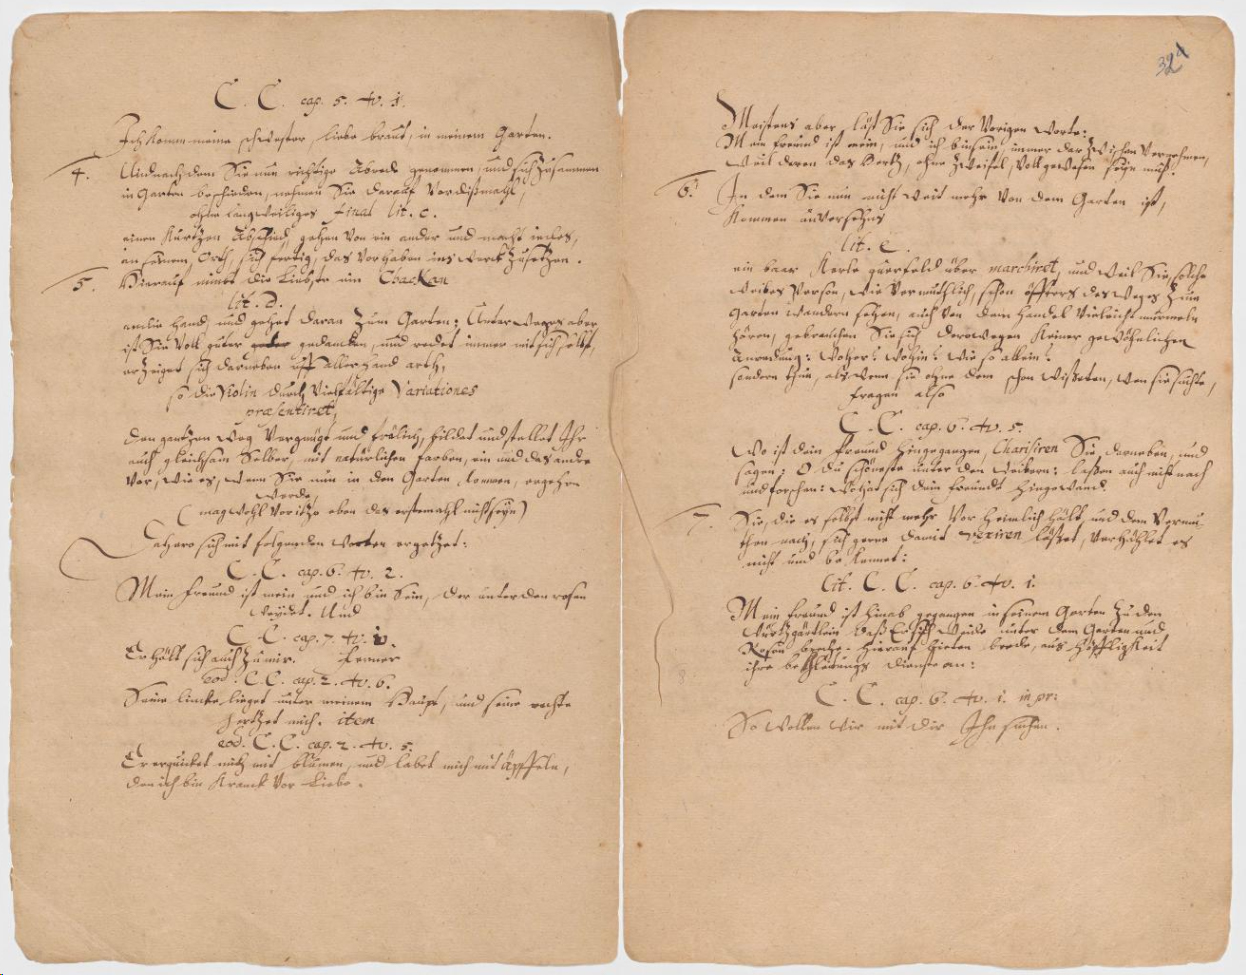 C. C. cap. 5. ℣. 1.
Ich komm meine schwester, liebe braut, in meinem Garten.
4. Und nach dem Sie nun richtige Abrede genommen, und sich zusammen
in Garten beschieden, nehmen Sie darauf vor dißmahl,
ohne langweiliges final lit. C.
einen kurtzen Abschied, gehen von ein ander und macht iedes,
an seinem Orth, sich fertig, das vorhaben ins werck zu setzen.
5. Hierauf nimt die Liebste im Chackan
lit. D.
an die hand, und gehet daran zum Garten: Unterweges aber
ist Sie voll guter gedancken, und redet immer mit sich selbst,
erzeiget sich darneben uff aller hand arth,
so die Violin durch vielfältige Variationes
præsentiret,
den gantzen weg vergnügt und frölich, bildet und stellet Ihr
auch gleichsam selber, mit natürlichen farben, ein und das andre
vor, wie es, wenn Sie nun in den Garten komen, ergehen
werde,
(mag wohl vor itzo eben das erstemahl nicht seyn)
Daher sich mit folgenden worten ergetzet:
C. C. cap. 6. ℣. 2.
Mein freund ist mein und ich bin Sein, der unter den rosen
weydet. Und
C. C. cap. 7. ℣. 10.
Er hält sich auch zu mir. Ferner
eod. C. C. cap. 2. ℣. 6.
Seine lincke lieget unter meinem Haupt, und seine rechte
hertzet mich. item
eod. C. C. cap. 2. ℣. 5.
Er erquicket mich mit blumen, und labet mich mit äpffeln,
den ich bin kranck vor Liebe.
32
Meistens aber läst Sie sich der vorigen worte:
Mein freund ist mein, und ich bin sein, immer darzwischen vernehmen,
weil deren das Hertz, ohne zweifel, voll gewesen seyn muß.
6. In dem Sie nun nicht weit mehr von dem Garten ist,
kommen unversehns
lit. E.
ein baar Kerls querfeld über marchiret, und weil Sie, solche
weibes Person, wie vermuthlich, schon öffters des weges zum
Garten wandern sehen, auch von dem handel vieleicht murmeln
hören, gebrauchen Sie sich derowegen keiner gewöhnlichen
Anredung: woher? wohin? wie so allein?
sondern thun, als wenn sie ohne dem schon wißeten, wen sie suchte,
fragen also
C. C. cap. 6. ℣. 5.
Wo ist dein freund hingegangen, Charisiren Sie darneben, und
sagen: O du schönste unter den weibern: laßen auch nicht nach
und forschen: wohat sich dein freundt hingewand.
7. Sie, die es selbst nicht mehr vor heimlich hält, und dem vermu-
then nach, sich gerne damit vexiren läßet, verhählet es
nicht und bekennet:
lit. C. C. cap. 6. ℣. 1.
Mein freund ist hinab gegangen in seinen Garten zu den
würtzgärtlein daß Er sich weide unter dem Garten und
Rosen breche. Hierauf bieten beede, aus höffligkeit
ihre begleitungs dienste an:
C. C. cap. 6. ℣. 1. in pr:
So wollen wir mit dir Ihn suchen.